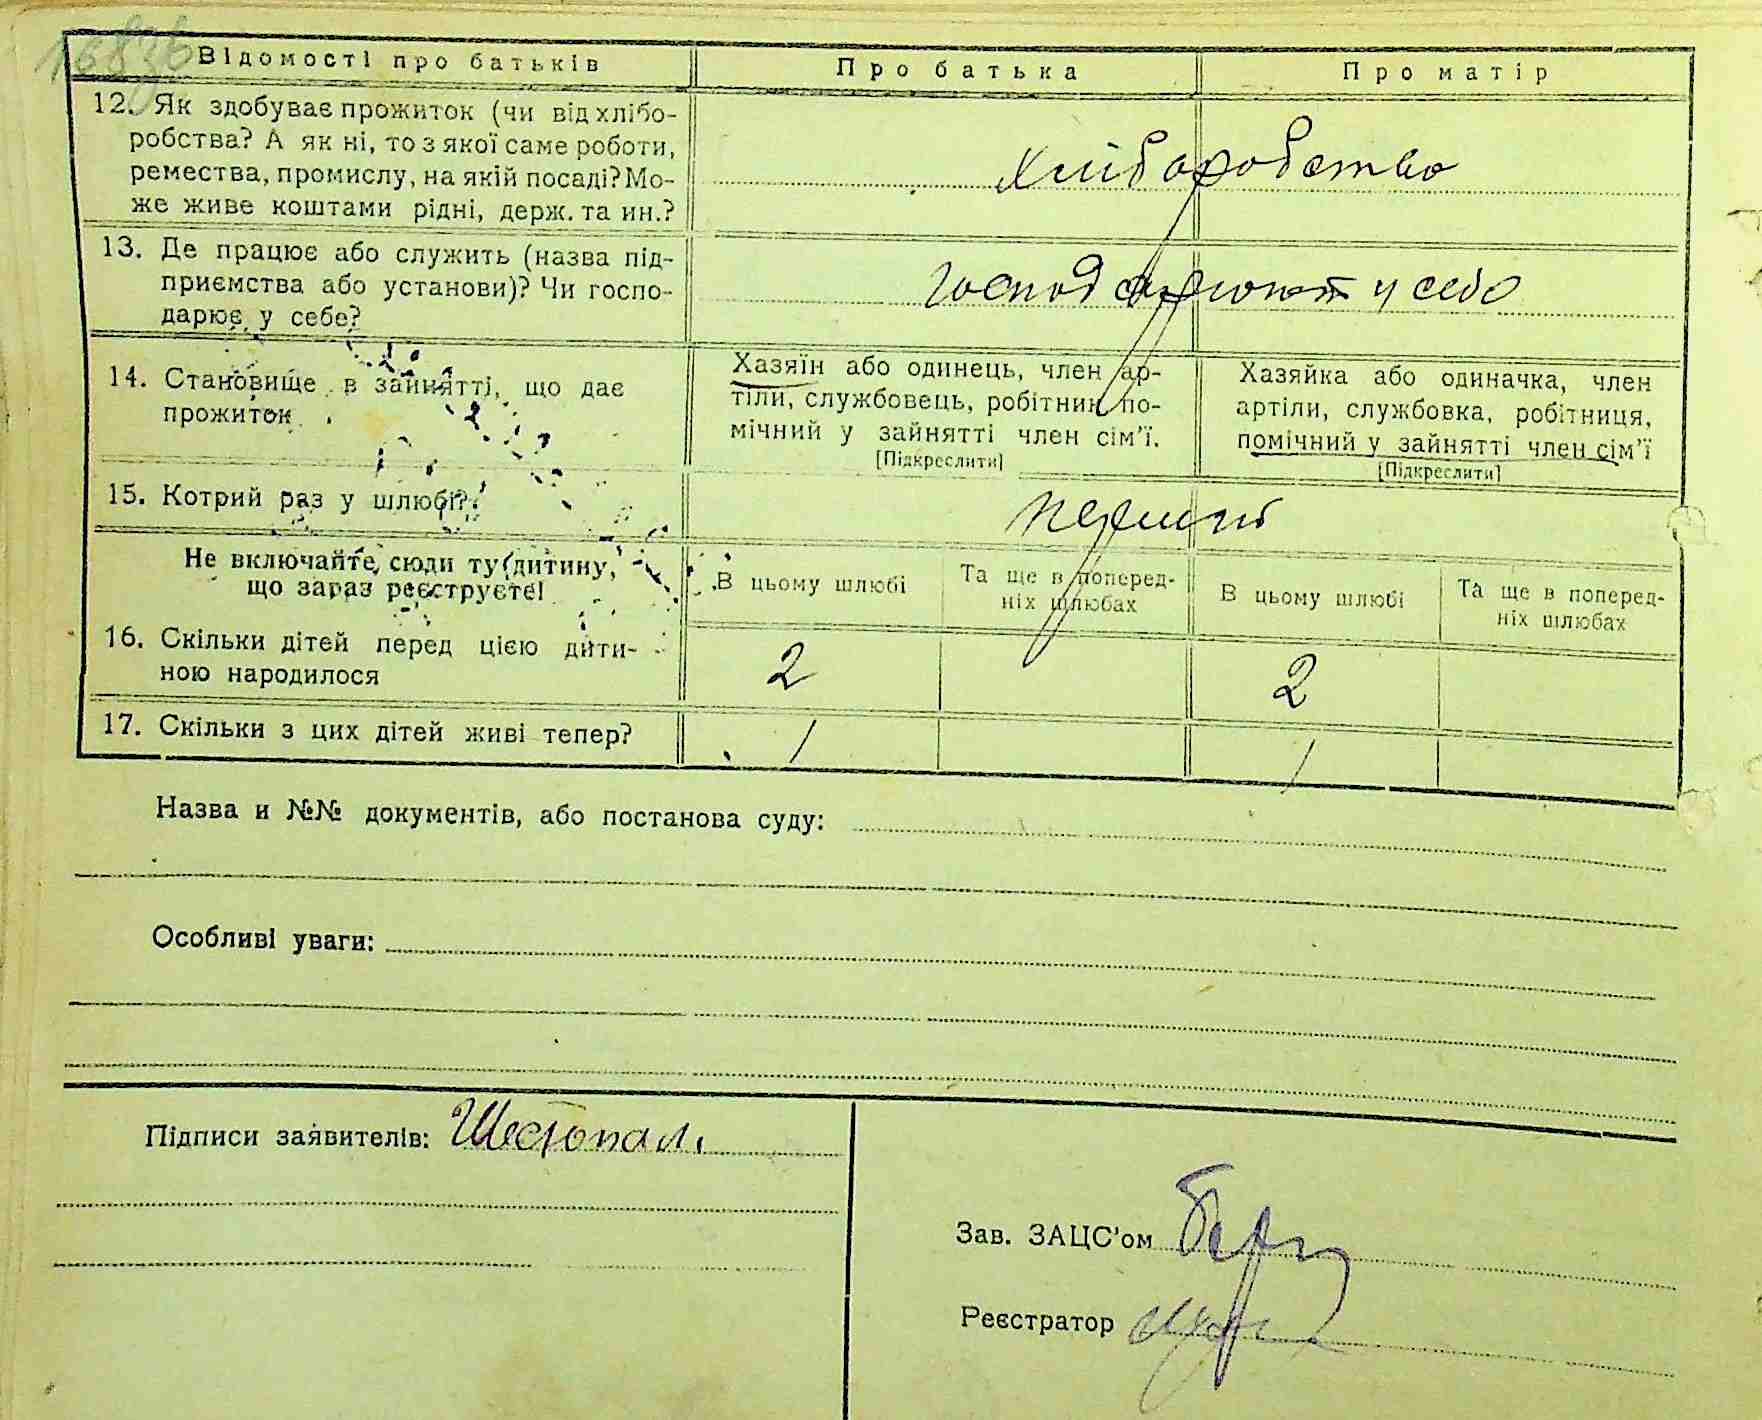 Відомості про батьків Про батька Про матір
12. Як здобуває прожиток (чи від хлібо-
робства? А як ні, то з якої саме роботи,
ремества, промислу, на якій посаді? Мо-
же живе коштами рідні, держ. та ин.?
хліборобство
13. Де працює або служить (назва під-
приємства або установи)? Чи госпо-
дарює у себе?
господарюют у себе
14. Становище в зайнятті, що дає
прожиток
Хазяїн або одинець, член ар-
тіли, службовець, робітник, по-
мічний у зайнятті член сім'ї.
[Підкреслити]
Хазяйка або одиначка, член
артіли, службовка, робітниця,
помічний у зайнятті член сім'ї
[Підкреслити]
15. Котрий раз у шлюбі?
первий
Не включайте сюди ту дитину,
що зараз реєструєте!
В цьому шлюбі
Та ще в поперед-
ніх шлюбах
В цьому шлюбі
Та ще в поперед-
ніх шлюбах
16. Скільки дітей перед цією дити-
ною народилося
2 2
17. Скільки з цих дітей живі тепер?
1 1
Назва и №№ документів, або постанова суду:
Особливі уваги:
Підписи заявителів: Шестопал
Зав. ЗАЦС'ом
Реєстратор